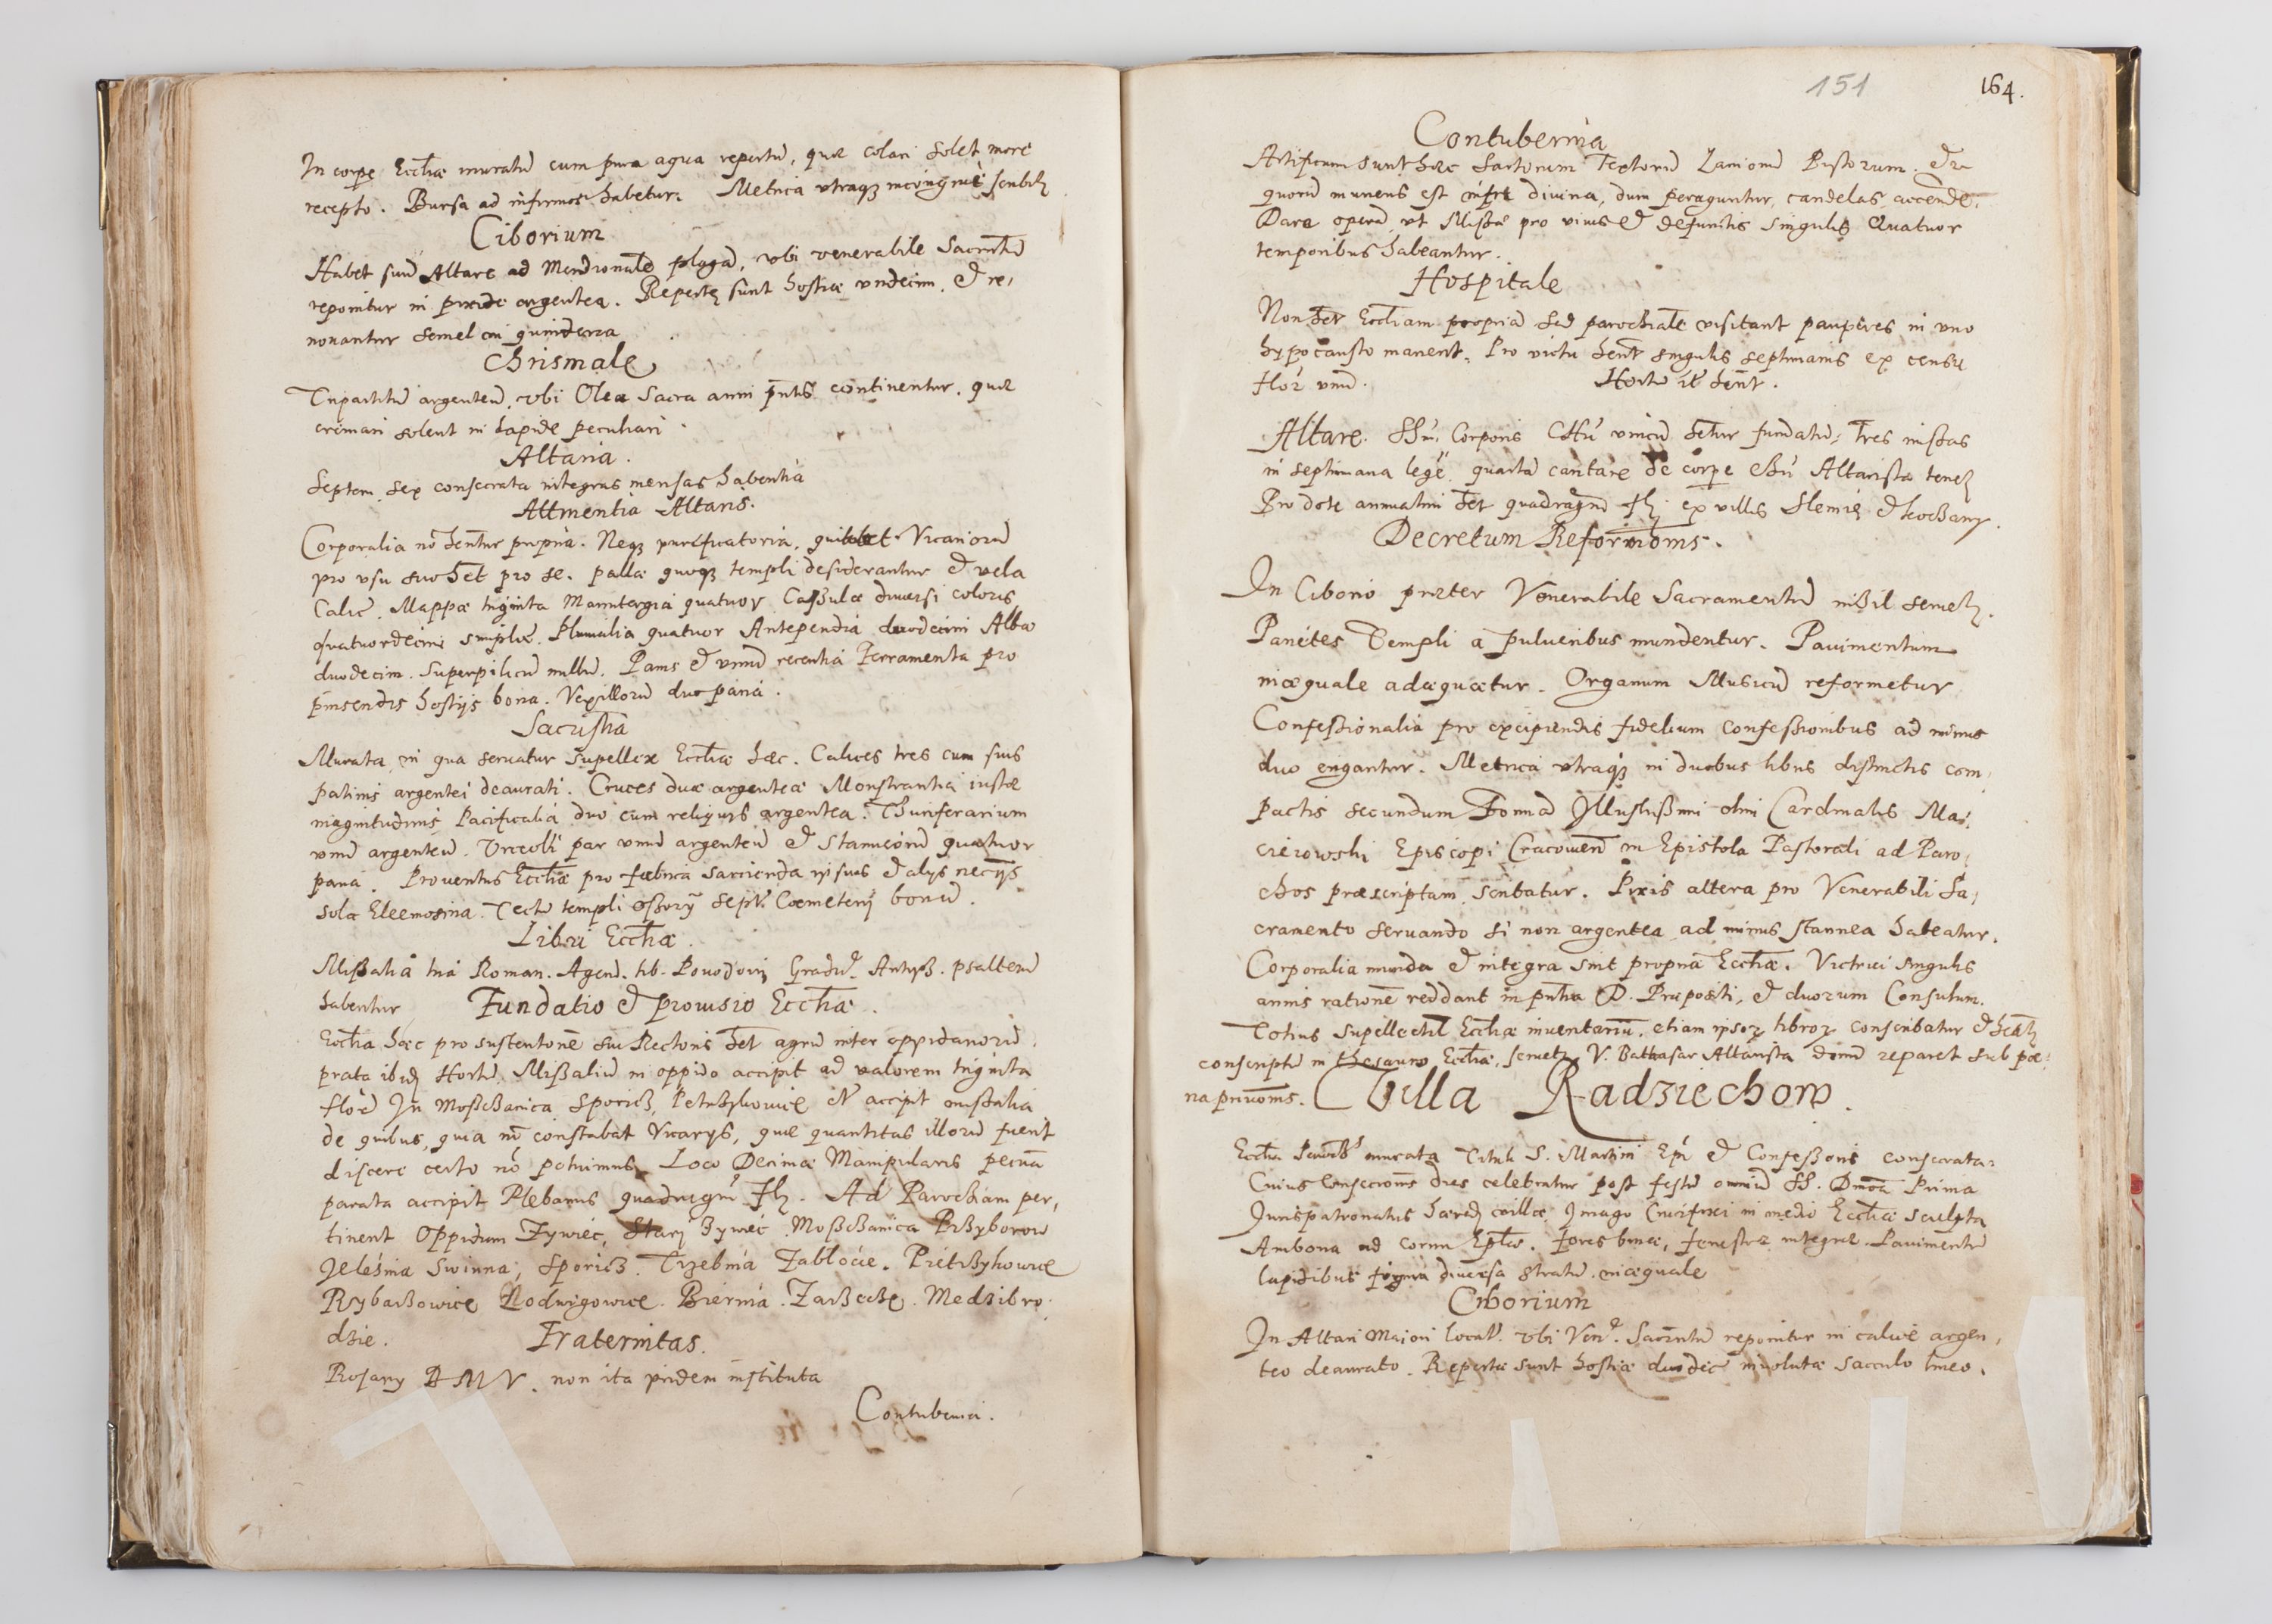 In corpe Eccliæ muratũ cum pura aqua repertũ, quæ colari solet more
recepto. Bursa ad infirmos habetur. Metrica vtraqȝ incongruè scribit͛
Ciborium
Habet suũ Altare ad Meridionalē plagã, vbi venerabile Sacrñtũ
reponitur in pixide argentea. Repertę sunt hostiæ vndecim, et re,
nouantur semel in quindena
Chrismale
Tripartitũ argenteũ, vbi Olea Sacra anni pñtis continentur. quæ
cremari solent in lapide peculiari.
Altaria.
Septem, sex consecrata integras mensas habentia
Attinentia Altaris.
Corporalia nõ hentur propria. Neqȝ purificatoria, quilibet Vicariorũ
pro vsu suo het pro se. palla quoqȝ templi desiderantur et vela
Calic̃. Mappæ triginta Manutergia quatuor Casulæ diuersi coloris
quatuordecim simplic̃. Pluuialia quatuor Antependia duodecim Albæ
duodecim. Superpiliciũ nullũ. Panis et vinũ recentia Ferramenta pro
pinsendis hostijs bona. Vexillorũ duo paria.
Sacristia
Murata, in qua seruatur supellex Eccliæ hæc. Calices tres cum suis
patinis argentei deaurati. Cruces duæ argenteæ Monstrantia iustæ
magnitudinis Pacificalia duo cum reliquijs argentea. Thuriferarium
vnũ argenteũ. Vrceoli par vnũ argenteũ et stanneorũ quatuor
paria. Prouentus Eccliæ pro fabrica sarcienda ipsius et alijs nec̃ijs
sola Eleemosina. Tectũ templi ossorij sept. Cœmeterij bonũ.
Libri Eccliæ.
Missalia tria Roman. Agend. lib. Pouodovij Graduē. Antyph. psalteriũ
habentur
Fundatio et prouisio Eccliæ.
Ecclia hæc pro sustentonē sui Rectoris het agrũ inter oppidanorũ,
prata ibid͛ Hortũ. Missaliũ in oppido accipit ad valorem triginta
flor̃ In Moszczanica Sporisz, Pietrzykowice it̃ accipit missalia
de quibus, quia nõ constabat Vicarijs, quæ quantitas illorũ fuerit
discere certo nõ potuimus. Loco Decimæ Manipularis pecuã
parata accipit Plebanus quadragin̄ fl͛. Ad Parochiam per,
tinent Oppidum Zywiec, Stary Zywiec Moszczanica Przyborow
Jelesnia Swinna, Sporisz. Trzebinia Zablocie. Pietrzykowice
Rybarzowice Lodwigowice. Bierna. Zarzecze. Medzibro,
dzie.
Fraternitas.
Rosary B M V. non ita pridem instituta
Contubernia.
151
164.
Contubernia
Artificum sunt hæc Sartorum Textorũ Lanionũ Pistorum. Et
quorũ muneris est infra diuina, dum peraguntur, candelas accendẽ,
Dare operã, vt Missæ pro viuis et defunctis singulis Quatuor
temporibus habeantur.
Hospitale
Non het Eccliam propriã sed parochialē visitant pauperes, in vno
hypocausto manent. Pro victu hent singulis septimanis ex censu
flor̃ vnũ.
Hortũ it̃ hent.
Altare. SSmi Corporis Chri vnicũ hetur fundatũ, tres missas
in septimana legẽ, quartã cantare de corpe Chri Altarista tenet͛
Pro dote annuatim het quadragin̄ fl͛ ex villis Slemię et Koczany.
Decretum Reformõnis.
In Ciborio præter Venerabile Sacramentũ nihil seruet͛.
Parietes Templi a pulueribus mundentur. Pauimentum
inæquale adæquetur. Organum Musicũ reformetur
Confessionalia pro excipiendis fidelium confessionibus ad minus
duo erigantur. Metrica vtraqȝ in duobus libris distinctis com,
pactis secundum Formã Illustrissimi olim Cardinalis Ma,
cieiowski Episcopi Cracouien in Epistola Pastorali ad Paro,
chos præscriptam, scribatur. Pixis altera pro Venerabili Sa,
cramento seruando si non argentea ad minus stannea habeatur.
Corporalia munda et integra sint propria Eccliæ. Vitrici singulis
annis rationē reddant in pñtia D. Præpositi, et duorum Consulum.
Totius supellectil Eccliæ inuentariũ, etiam ipsoꝝ libroꝝ conscribatur et
conscriptũ in thesauro Eccliæ, seruet͛. V. Baltasar Altarista domũ reparet sub pœ,
na priuõnis.
Villa Radziechow.
Ecclia murata Tituli S. Martini Epi et Confessoris consecrata.
Cuius Consecrõnis dies celebratur post festũ omniũ SS. Dnica Prima
Jurispatronatus hæred͛ villæ. Imago Crucifixi in medio Eccliæ sculpta
Ambona ad cornu Eplæ. fores binæ, fenestræ integræ. Pauimentũ
lapidibus figura diuersa stratũ. inæquale
Ciborium
In Altari Maiori locat̃. vbi Venē. Sacrñtũ reponitur in calice argen,
teo deaurato. Repertæ sunt hostiæ duodec̃ inuolutæ sacculo lineo.